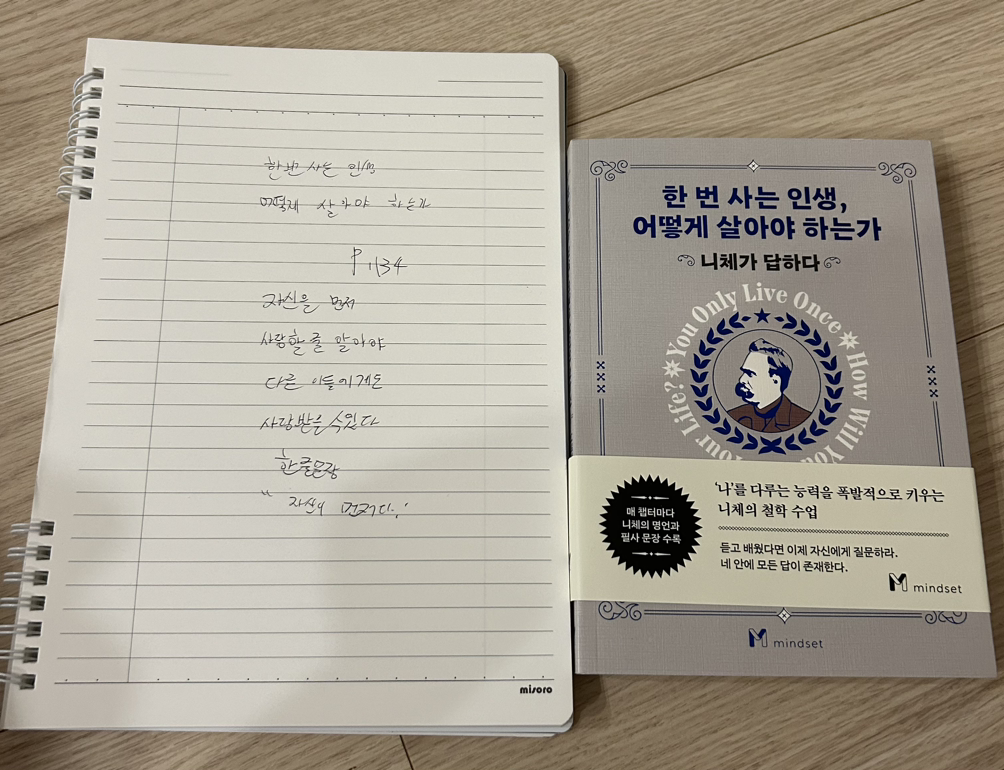 한번 사는 인생
어떻게 살아야 하는가
P.134
자신을 먼저
사랑할 줄 알아야
다른 이들에게도
사랑받을 수 있다
한줄문장
" 자신이 먼저다."
misoro
한 번 사는 인생,
어떻게 살아야 하는가
니체가 답하다
You Only Live Once
How Will You
Your Life?
'나'를 다루는 능력을 폭발적으로 키우는
니체의 철학 수업
매 챕터마다
니체의 명언과
필사 문장 수록
듣고 배웠다면 이제 자신에게 질문하라.
네 안에 모든 답이 존재한다.
M mindset
M mindset